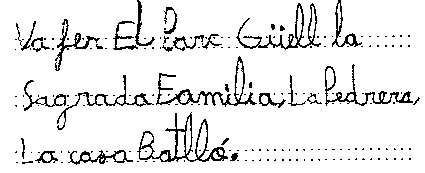 Va fer El Parc Güell la
Sagrada Familia, La Pedrera,
La casa Batlló.